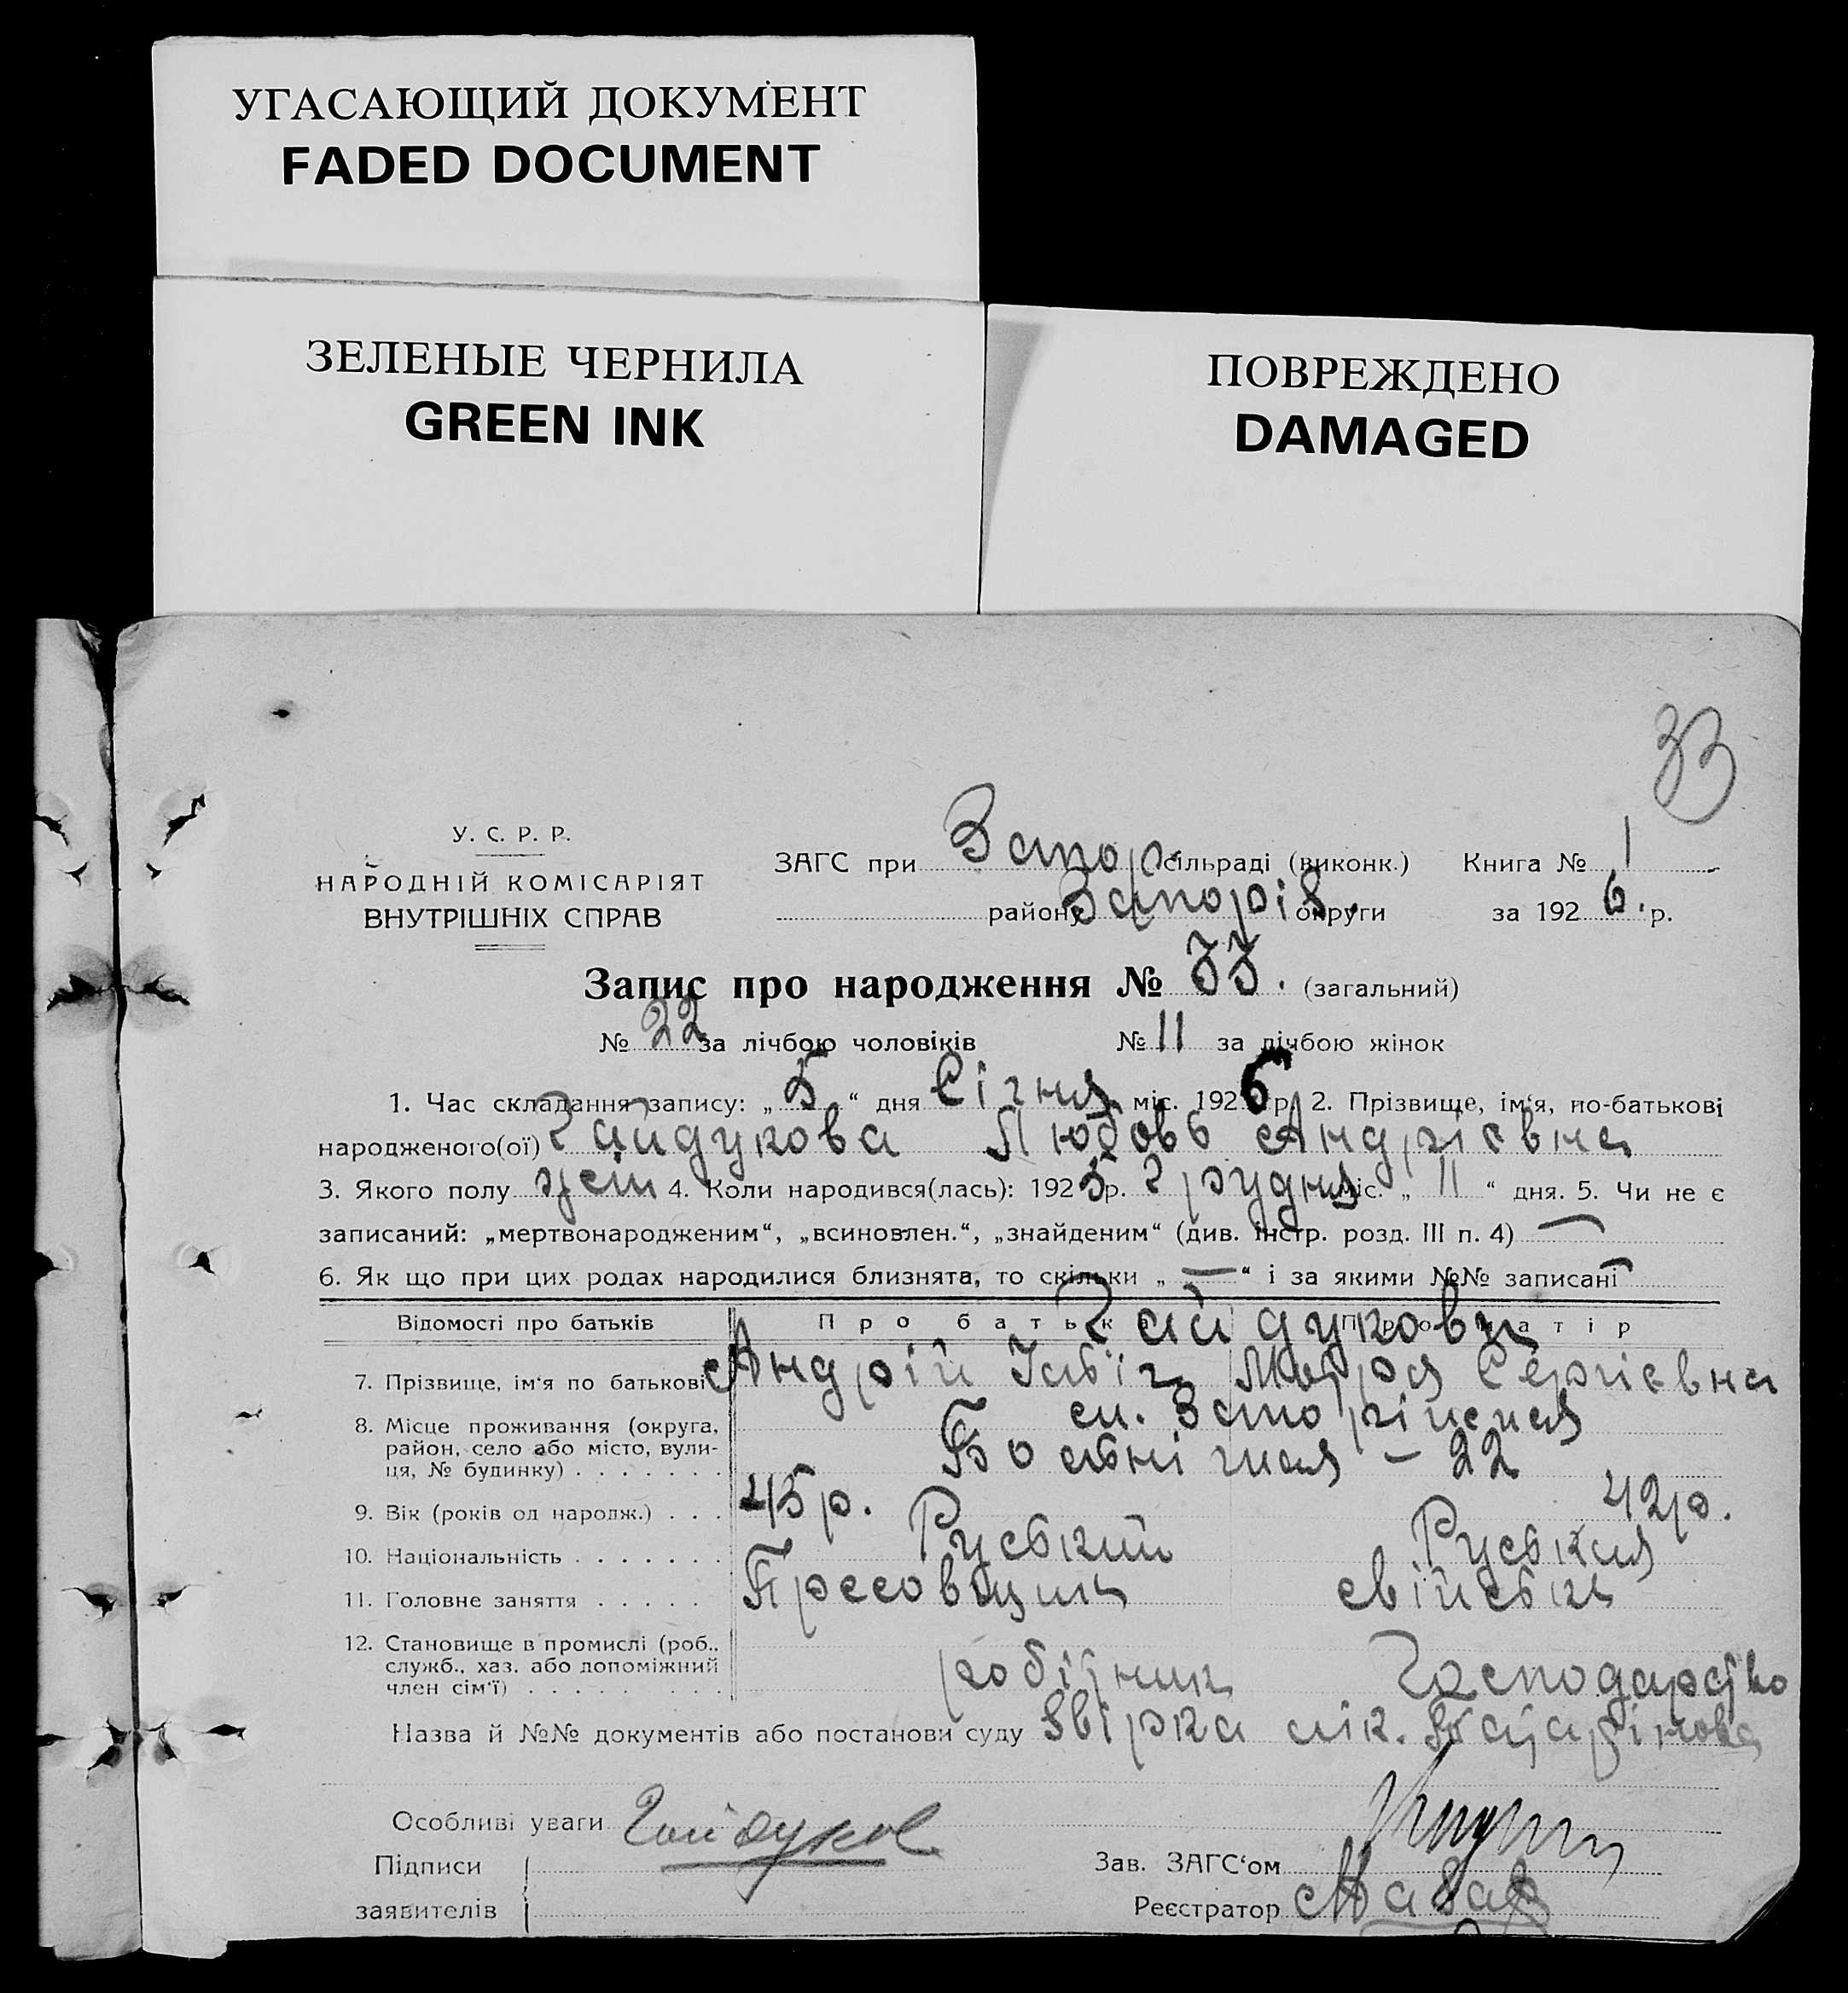 УГАСАЮЩИЙ ДОКУМЕНТ
FADED DOCUMENT
ЗЕЛЕНЫЕ ЧЕРНИЛА
GREEN INK
ПОВРЕЖДЕНО
DAMAGED
33
У. С. Р. Р.
НАРОДНІЙ КОМІСАРІЯТ
ВНУТРІШНІХ СПРАВ
ЗАГС при Запор. сільраді (виконк.) Книга № 1
району Запоріз. округи за 192 6. р.
Запис про народження № 33. (загальний)
№ 22 за лічбою чоловіків № 11 за лічбою жінок
1. Час складання запису: „ 5 “ дня Січня міс. 192 6 р. 2. Прізвище, ім‘я, по-батькові
народженого(ої) Гайдукова Любовь Андрієвна
3. Якого полу жен 4. Коли народився(лась): 192 5 р. Грудня міс. „ 11 “ дня. 5. Чи не є
записаний: „мертвонародженим“, „всиновлен.“, „знайденим“ (див. інстр. розд. III п. 4) —
6. Як що при цих родах народилися близнята, то скільки „ — “ і за якими №№ записані —
Відомості про батьків Про батька Про матір
Гайдукови
7. Прізвище, ім‘я по батькові Андрій Марія Сергієвна
8. Місце проживання (округа, район, село або місто, вули- ця, № будинку)
22
9. Вік (років од народж.) 45 р. 42 р.
10. Національність Руський Руська
11. Головне заняття Прессовщик свійськ
12. Становище в промислі (роб., служб., хаз. або допоміжний член сім‘ї) робітник Господарство
Назва й №№ документів або постанови суду Звірка лік.
Особливі уваги Гайдуков
Підписи
заявителів
Зав. ЗАГС‘ом
Реєстратор